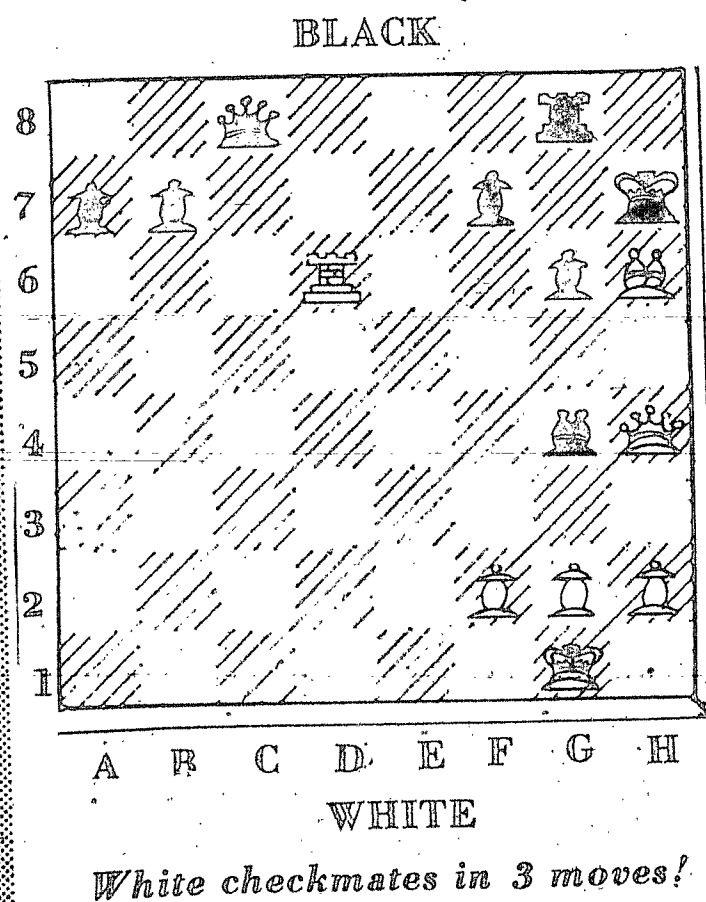 BLACK
8
7
6
5
4
3
2
1
A B C D E F G H
WHITE
White checkmates in 3 moves!